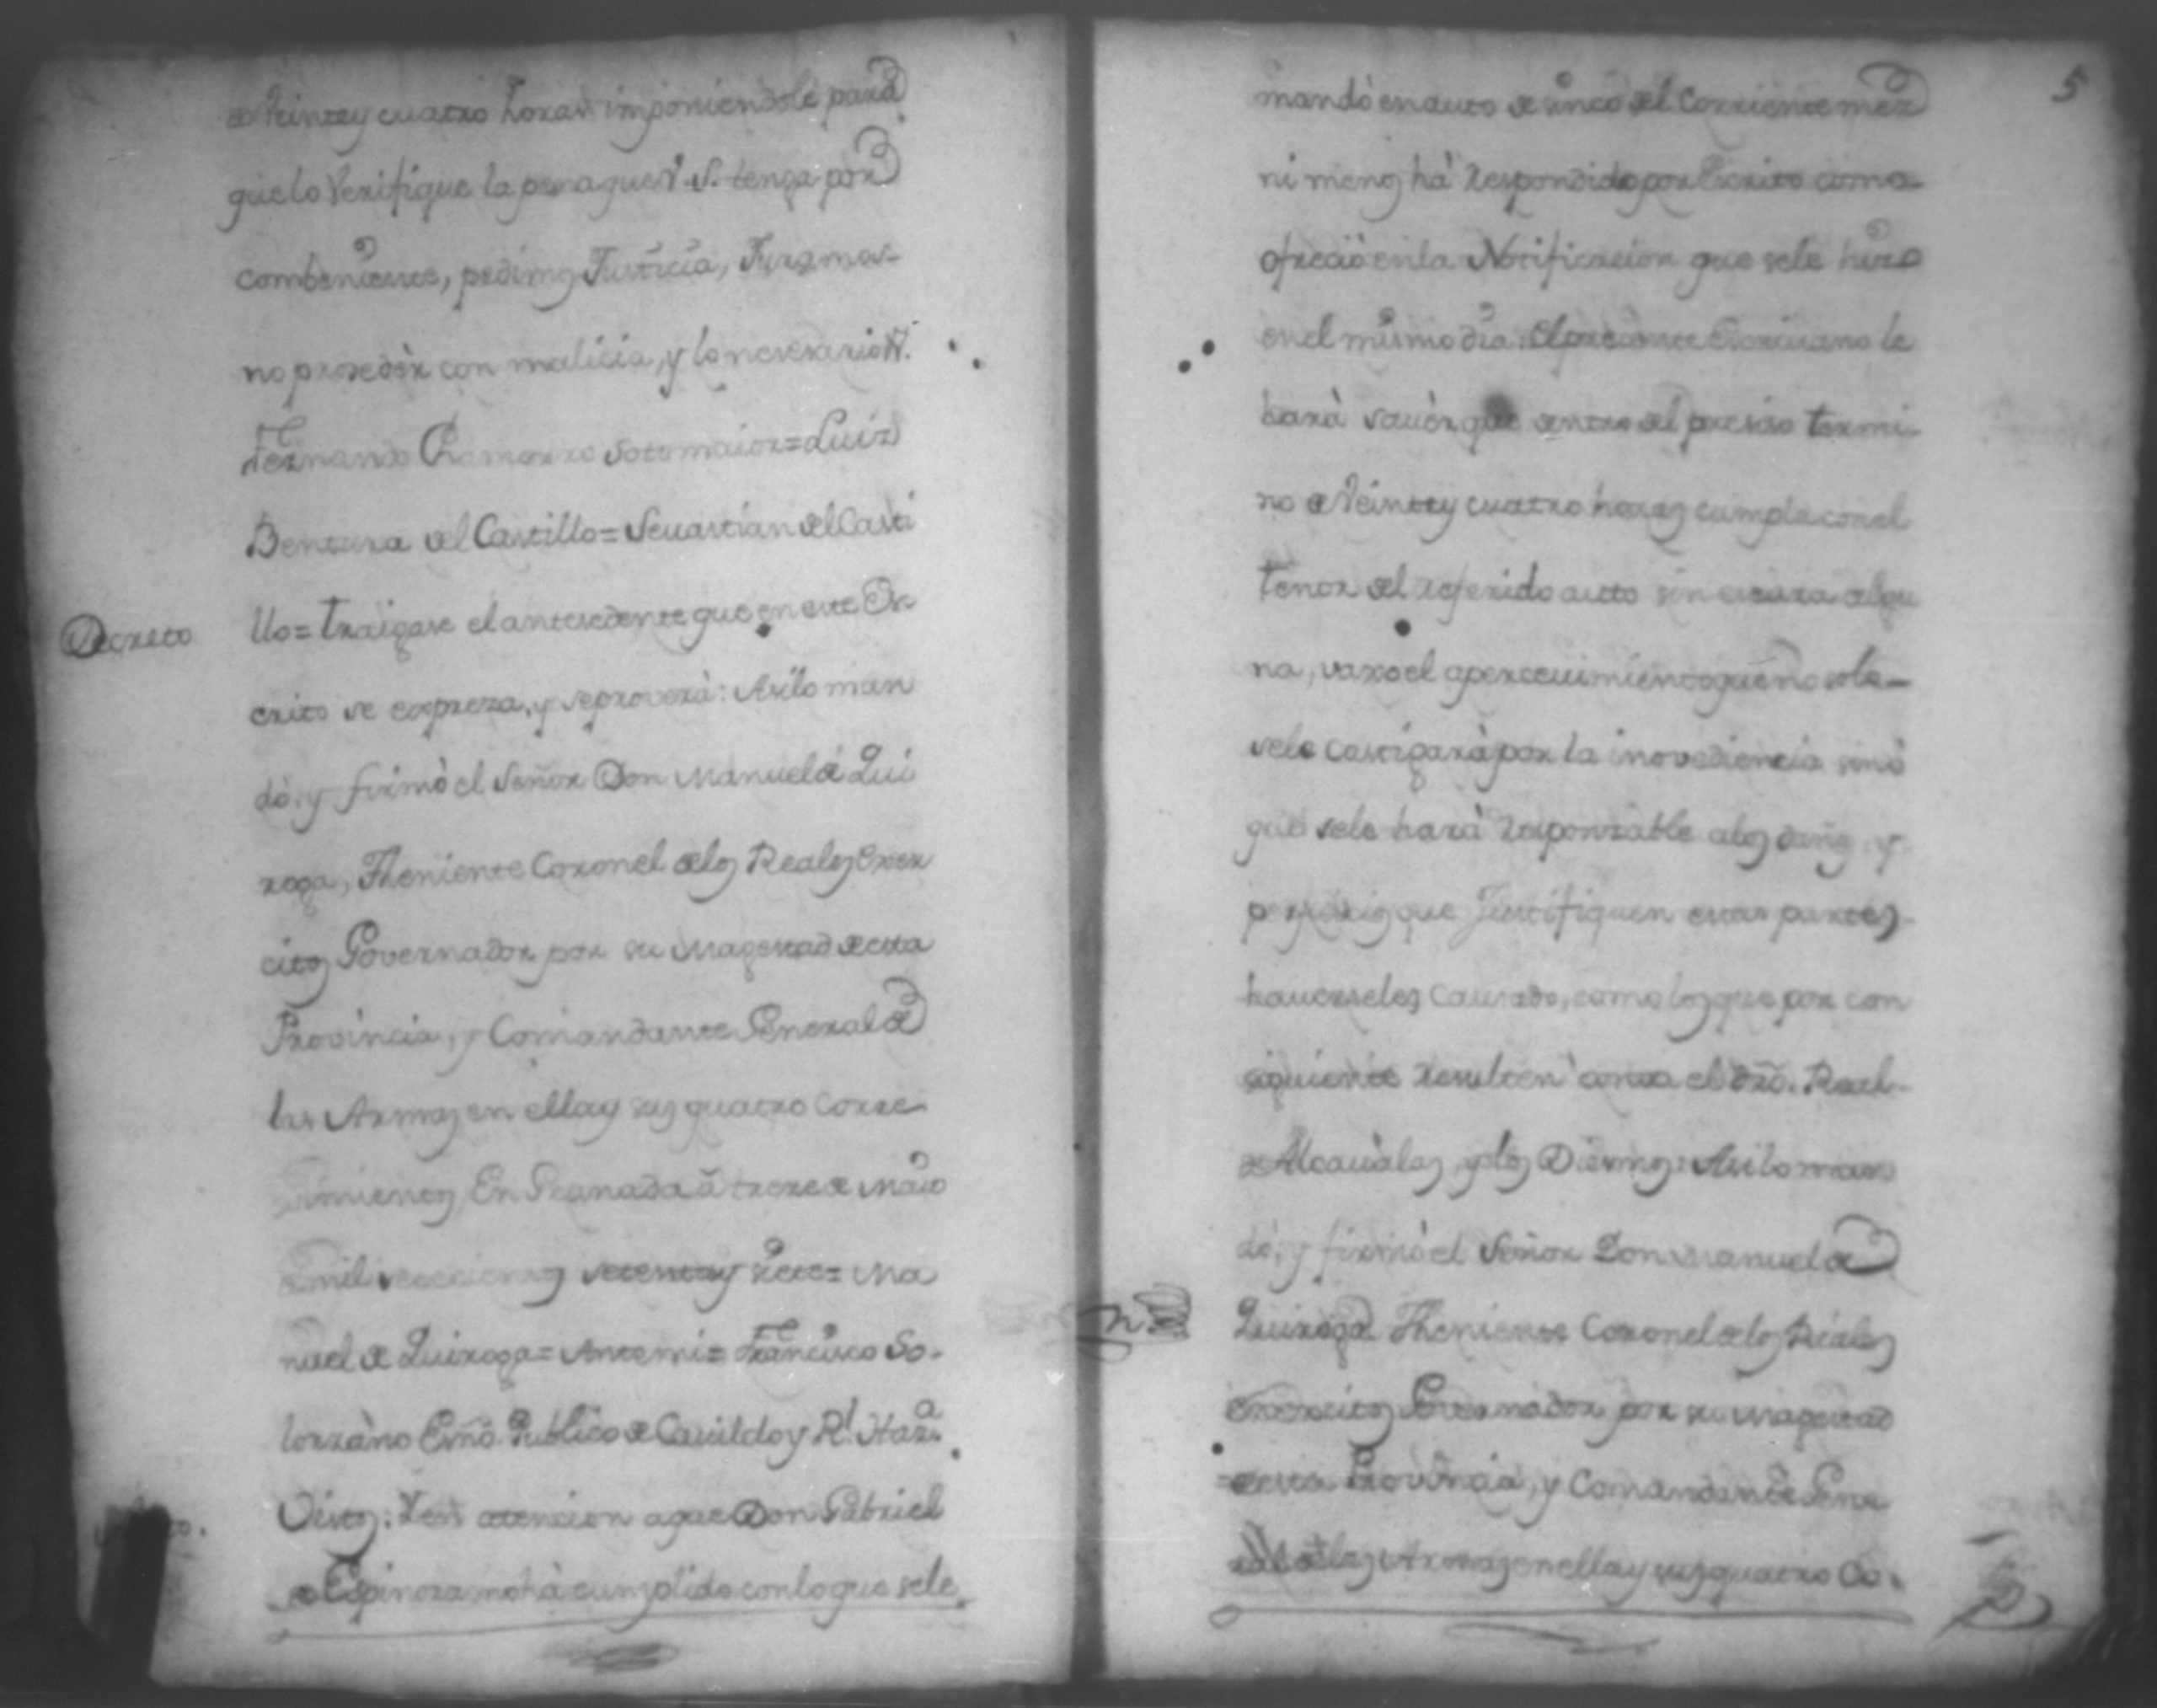 de Veinte y cuatro horas imponiendole para
que lo Verifique la pena que V.S. tenga por
combeniente, pedimos Justicia, Juramos
no prosedèr con malicia, y lo nesesario V.
Fernando Chamorro Sotomaior = Luis
Bentura del Castillo = Sevastian del Casti
Decreto
llo = Traigase el antesedente que en este Es
crito se expreza, y se proverà: Asilo man
dò, y firmò el Señor Don Manuel de Qui
roga, Theniente Coronel delos Reales Exer
citos Governador por su Magestad de esta
Provincia, y Comandante General de
las Armas en ella y sus quatro Corre
gimientos En Granada à treze de Maio
de mil setecientos setenta y siete = Ma
nuel de Quiroga = Antemi = Francisco So-
lorzàno Esño. Publico de Cavildo y Rl. Haz.a
Vistos: Y en atencion a que Don Gabriel
de Espinoza no hà cumplido con lo que sele
5
mandò en auto de sinco del Corriente mes
ni menos hà respondido por Escrito como
ofreciò en la Notificacion que sele hizo
en el mismo dia: El presente Escrivano le
harà savèr que dentro del presiso termi-
no de Veinte y cuatro horas cumpla con el
tenor del referido auto sin escusa algu
na, vaxo el apercevimiento que no sola-
sele castigarà por la inovediencia sinò
que sele harà responsable alos daños y
perjuicios que Justifiquen estas partes
haverseles Causado, como los que por con
siguiente resulten contra el dro. Real
de Alcavàlas, y dlos Diesmos: Asilo man
dò, y firmò el Señor Don Manuel de
Quiroga Theniente Coronel delos Reales
exercitos Governador por su Magestad
de esta Provincia, y Comandante Gene
ral delas Armas en ella y sus quatro Co.